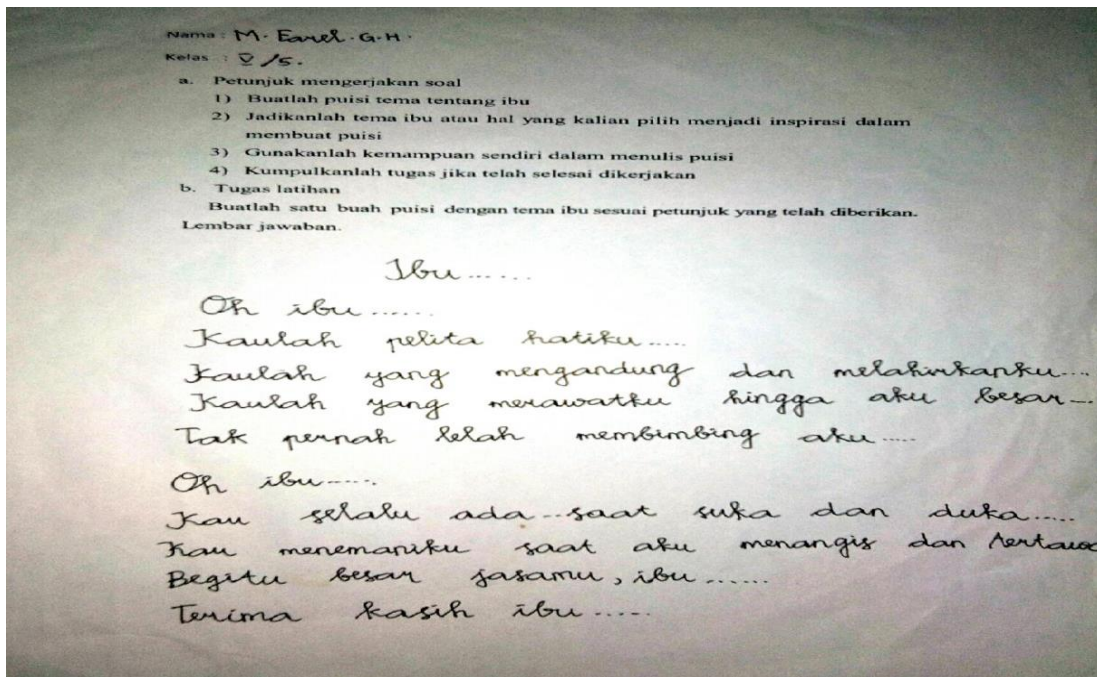 Nama : M. Earel . G . H .
Kelas : V /5 .
a. Petunjuk mengerjakan soal
1) Buatlah puisi tema tentang ibu
2) Jadikanlah tema ibu atau hal yang kalian pilih menjadi inspirasi dalam
membuat puisi
3) Gunakanlah kemampuan sendiri dalam menulis puisi
4) Kumpulkanlah tugas jika telah selesai dikerjakan
b. Tugas latihan
Buatlah satu buah puisi dengan tema ibu sesuai petunjuk yang telah diberikan.
Lembar jawaban.
Ibu ......
Oh ibu ......
Kaulah pelita hatiku .....
Kaulah yang mengandung dan melahirkanku....
Kaulah yang merawatku hingga aku besar...
Tak pernah lelah membimbing aku .....
Oh ibu ......
Kau selalu ada ...saat suka dan duka .....
Kau menemaniku saat aku menangis dan
Begitu besar jasamu, ibu ......
Terima kasih ibu .....